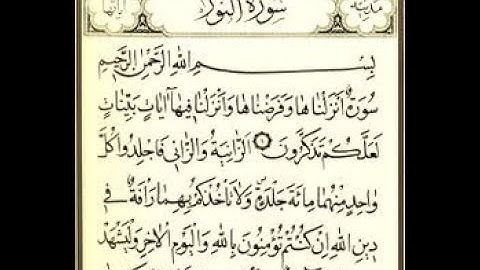 مدنية سورة النور آياتها
بِسْمِ اللَّهِ الرَّحْمَٰنِ الرَّحِيمِ
سُورَةٌ أَنْزَلْنَاهَا وَفَرَضْنَاهَا وَأَنْزَلْنَا فِيهَا آيَاتٍ بَيِّنَاتٍ
لَعَلَّكُمْ تَذَكَّرُونَ الزَّانِيَةُ وَالزَّانِي فَاجْلِدُوا كُلَّ
وَاحِدٍ مِنْهُمَا مِائَةَ جَلْدَةٍ وَلَا تَأْخُذْكُمْ بِهِمَا رَأْفَةٌ فِي
دِينِ اللَّهِ إِنْ كُنْتُمْ تُؤْمِنُونَ بِاللَّهِ وَالْيَوْمِ الْآخِرِ وَلْيَشْهَدْ